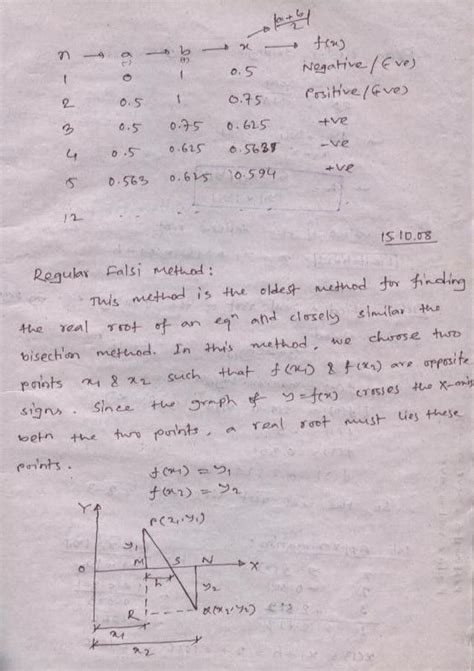 |a+b|/2
n → a → b → x → f(x)
(-) (+)
1 0 1 0.5 Negative/(-ve)
2 0.5 1 0.75 Positive/(+ve)
3 0.5 0.75 0.625 +ve
4 0.5 0.625 0.563 -ve
5 0.563 0.625 0.594 +ve
12 .. .. .. ..
15.10.08
Regular Falsi Method:
This method is the oldest method for finding
the real root of an eqn and closely similar the
bisection method. In this method, we choose two
points x1 & x2 such that f(x1) & f(x2) are opposite
signs. Since the graph of y=f(x) crosses the x-axis
betn the two points, a real root must lies these
points.
f(x1) = y1
f(x2) = y2
Y
P(x1,y1)
y1
O M S N X
h y2
R Q(x2,y2)
x1
x2